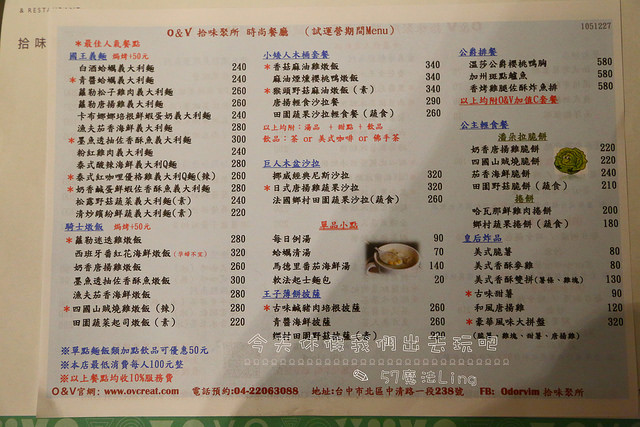 & RESTAURANT
拾味
O&V 拾味聚所 時尚餐廳 (試運營期間Menu)
1051227
＊最佳人氣餐點
國王義麵 焗烤+50元
白酒蛤蠣義大利麵 240
＊青醬蛤蠣義大利麵 240
蘿勒松子雞肉義大利麵 260
蘿勒唐揚雞義大利麵 260
卡布娜娜培根鮮蝦蛋奶義大利麵 240
漁夫茄香海鮮義大利麵 280
＊墨魚透抽佐香酥魚義大利麵 300
粉紅雞肉義大利麵 240
泰式酸辣海鮮義大利Q麵 280
＊泰式紅咖哩僧格雞義大利Q麵(辣) 260
＊奶香鹹蛋鮮蝦佐香酥魚義大利麵 280
松露野菇蔬菜義大利麵(素) 240
清炒繽紛鮮蔬義大利麵(素) 220
騎士燉飯 焗烤+50元
＊蘿勒迷迭雞燉飯 280
西班牙番紅花海鮮燉飯 320
奶香唐揚雞燉飯 260
墨魚透抽佐香酥魚燉飯 300
漁夫茄香海鮮燉飯 280
＊四國山賊燒雞燉飯(辣) 280
田園蔬菜起司燉飯(素) 220
※單點麵飯類加點飲品可優惠50元
※本店最低消費每人100元整
※以上餐點均收10%服務費
小矮人木桶套餐
＊香菇麻油雞燉飯 340
麻油煙燻櫻桃鴨燉飯 340
＊猴頭野菇麻油燉飯(素) 340
唐揚輕食沙拉餐 290
田園蔬果沙拉輕食餐(蔬食) 260
以上均附：湯品 + 甜點 + 飲品
飲品：茶 or 美式咖啡 or 佛手茶
巨人木盆沙拉
挪威經典尼斯沙拉 320
＊日式唐揚雞蔬果沙拉 320
法國鄉村田園蔬果沙拉(蔬食) 260
單品小點
每日例湯 90
蛤蠣清湯 70
馬德里番茄海鮮湯 140
軟法起士麵包 20
王子薄餅披薩
＊古味鹹豬肉培根披薩 260
青醬海鮮披薩 260
鄉村田園野菇披薩(素) 220
公爵排餐
溫莎公爵櫻桃鴨胸 580
加州斑點鱸魚 580
香烤雞腿佐酥炸魚排 580
以上均附O&V加值C套餐
公主輕食餐
潘朵拉脆餅
奶香唐揚雞脆餅 220
四國山賊燒脆餅 220
茄香海鮮脆餅 240
田園野菇脆餅(蔬食) 210
捲餅
哈瓦那鮮雞肉捲餅 200
鄉村蔬果捲餅(蔬食) 180
皇后炸品
美式脆薯 80
美式香酥麥雞 80
美式香酥雙拼(薯條、雞塊) 130
＊古味甜薯 90
和風唐揚雞 120
＊豪華風味大拼盤 320
今天休假我們出去玩吧
57魔法Ling
O&V官網：www.ovcreat.com 電話預約:04-22063088 地址:台中市北區中清路一段238號 FB: Odorvim 拾味聚所